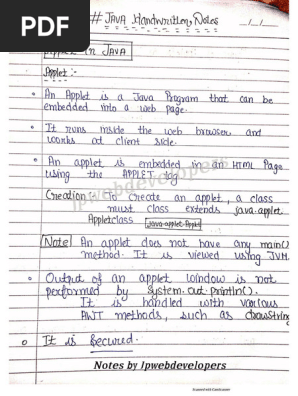 PDF
# JAVA Handwritten Notes
_/_/_
Applet in JAVA
Applet :-
• An Applet is a Java Program that can be
embedded into a web page.
• It runs inside the web browser and
works at client side.
• An applet is embedded in an HTML Page
using the APPLET tag
Creation :- To create an applet, a class
must class extends java.applet.
Applet class java.applet.Applet
Note! An applet does not have any main()
method. It is viewed using JVM.
• Output of an applet window is not
performed by System.out.println().
It is handled with various
AWT methods, such as drawString
• It is secured.
Notes by Ipwebdevelopers
Ipwebdevelopers